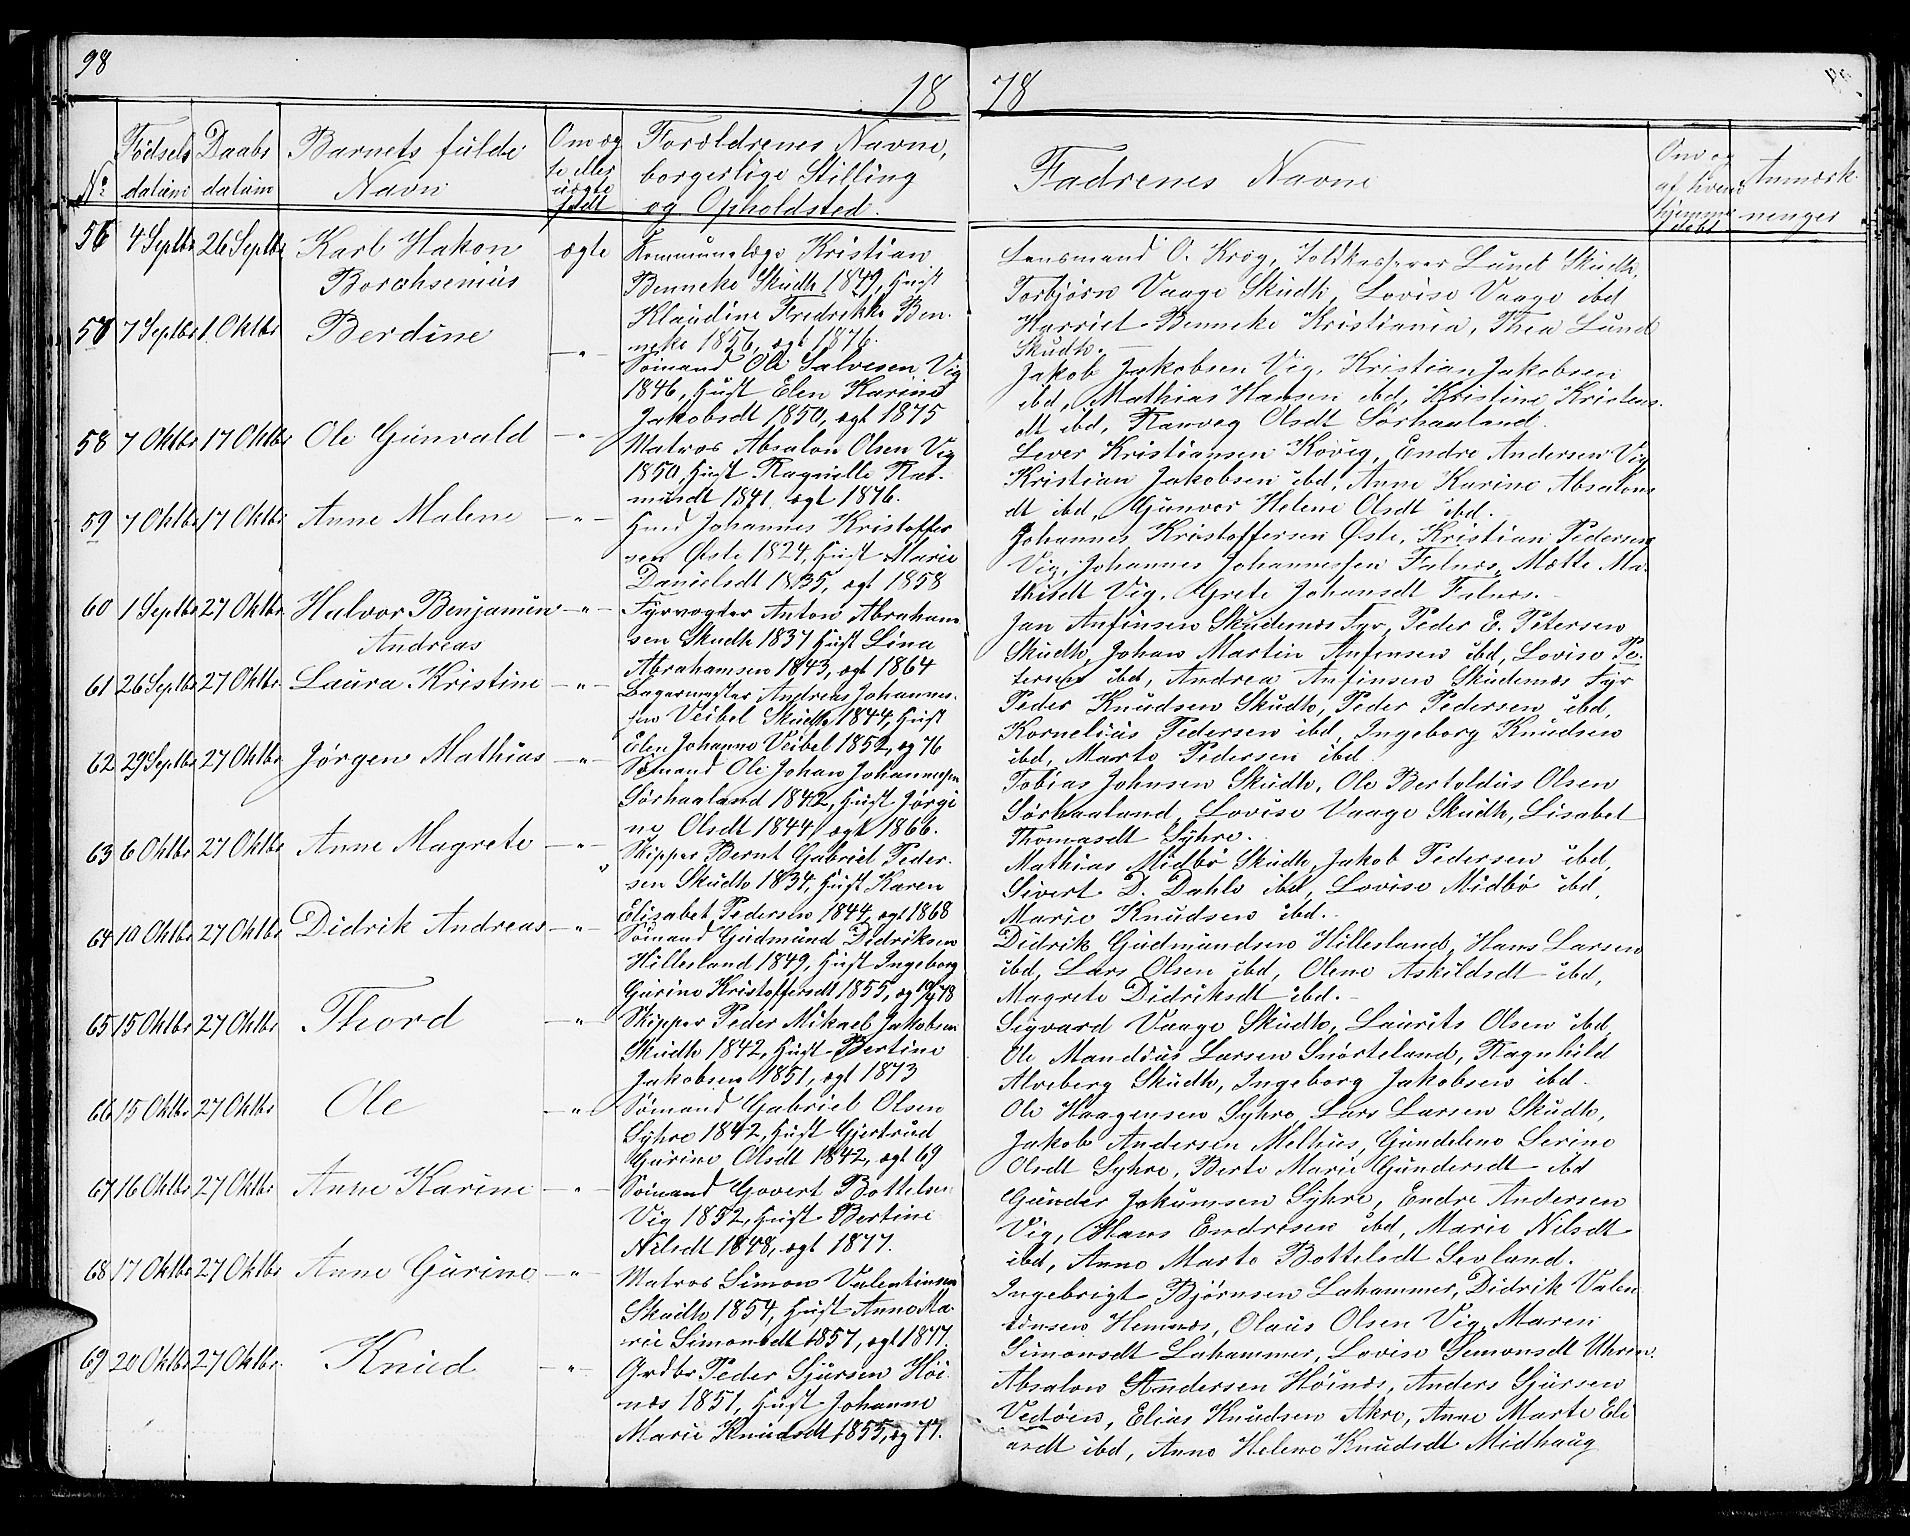 98
18 78
No
Fødsels datum
Daabs datum
Barnets fulde Navn
Om ægte eller uægte født
Forældrenes Navne, borgerlige Stilling og Opholdsted.
Fadrenes Navne
Om og af hvem hjemmedøbt
Anmærkninger
56 4 Septbr 26 Septbr Karl Hakon Borchsenius ægte
Kommunelæge Kristian
Benneke Skudh 1849, Hust
Klaudine Fredrikke Ben-
neke 1856, egt 1876.
Lensmand O. Krög, Toldkasserer Lund Skudh,
Torbjörn Vaage Skudh, Lovise Vaage ibd
Harriet Benneke Kristiania, Thea Lund
Skudh.
57 7 Septbr 1 Oktbr Berdine -"-
Sömand Ole Salvesen Vig
1846, Hust Elen Karine
Jakobsdt 1850, egt 1875
Jakob Jakobsen Vig, Kristian Jakobsen
ibd, Mathias Hansen ibd, Kristine Kristens-
dt ibd, Ranveg Olsdt Sörhaaland.
58 7 Oktbr 17 Oktbr Ole Gunvald -"-
Matros Absalon Olsen Vig
1850, Hust Ragnille Ras-
musdt 1841, egt 1876.
Sever Kristiansen Kovig, Endre Andersen Vig
Kristian Jakobsen ibd, Anne Karine Absalons
dt ibd, Gunvor Helene Olsdt ibd.
59 7 Oktbr 17 Oktbr Anne Malene -"-
Hmd Johannes Kristoffer
sen Øste 1824, Hust Marie
Danielsdt 1835, egt 1858
Johannes Kristoffersen Øste, Kristian Pedersen
Vig, Johannes Johannessen Falnes, Mætte Ma-
thisdt Vig, Grete Johansdt Falnes.
60 1 Septbr 27 Oktbr Halvor Benjamin Andreas -"-
Fyrvogter Anton Abraham
sen Skudh 1837 Hust Lina
Abrahamsen 1843, egt 1864
Jan Anfinsen Skudenes Fyr, Peder E. Petersen
Skudh, Johan Martin Anfinsen ibd, Lovise Pe-
tersen ibd, Andrea Anfinsen Skudenes Fyr
61 26 Septbr 27 Oktbr Laura Kristine -"-
Bagermester Andreas Johannes-
sen Veibel Skudh 1844, Hust
Elen Johanne Veibel 1852, eg 76
Peder Knudsen Skudh, Peder Pedersen ibd,
Kornelius Pedersen ibd, Ingeborg Knudsen
ibd, Marte Pedersen ibd
62 29 Septbr 27 Oktbr Jørgen Mathias -"-
Sömand Ole Johan Johannessen
Sörhaaland 1842, Hust Jörgi
ne Olsdt 1844, egt 1866.
Tobias Johnsen Skudh, Ole Bertoldus Olsen
Sörhaaland, Lovise Vaage Skudh, Lisabet
Thomasdt Syhre.
63 6 Oktbr 27 Oktbr Anne Magrete -"-
Skipper Bernt Gabriel Peder-
sen Skudh 1834, Hust Karen
Elisabet Pedersen 1844, egt 1868
Mathias Midbö Skudh, Jakob Pedersen ibd,
Sivert D. Dahle ibd, Lovise Midbö ibd,
Marie Knudsen ibd.
64 10 Oktbr 27 Oktbr Didrik Andreas -"-
Sömand Gudmund Didriksen
Hillesland 1849, Hust Ingeborg
Gurine Kristoffersdt 1855, eg 19/4 78
Didrik Gudmundsen Hillesland, Hans Larsen
ibd, Lars Olsen ibd, Olene Askildsdt ibd,
Magrete Didriksdt ibd.
65 15 Oktbr 27 Oktbr Thord -"-
Skipper Peder Mikael Jakobsen
Skudh 1842, Hust Bertine
Jakobsen 1851, egt 1873
Sigvard Vaage Skudh, Laurits Olsen ibd,
Ole Mandius Larsen Snörteland, Ragnhild
Alveberg Skudh, Ingeborg Jakobsen ibd.
66 15 Oktbr 27 Oktbr Ole -"-
Sömand Gabriel Olsen
Syhre 1842, Hust Gjertrud
Gurine Olsdt 1842, egt 69
Ole Haagensen Syhre, Lars Larsen Skudh,
Jakob Andersen Melhus, Gundelene Serine
Olsdt Syhre, Berte Marie Gundersdt ibd
67 16 Oktbr 27 Oktbr Anne Karine -"-
Sömand Govert Bottelsen
Vig 1852, Hust Bertine
Nilsdt 1848, egt 1877.
Gunder Jokumsen Syhre, Endre Andersen
Vig, Hans Endresen ibd, Marie Nilsdt
ibd, Anne Marte Bottelsdt Sevland.
68 17 Oktbr 27 Oktbr Anne Gurine -"-
Matros Simon Valentinsen
Skudh 1854, Hust Anne Ma-
rie Simonsdt 1857, egt 1877.
Ingebrigt Björnsen Lahammer, Didrik Valen
tinsen Hemnes, Olaus Olsen Vig, Maren
Simonsdt Lahammer, Lovise Simonsdt Uhren.
69 20 Oktbr 27 Oktbr Knud -"-
Grdbr Peder Sjursen Höi-
næs 1851, Hust Johanne
Marie Knudsdt 1855, eg 77.
Absalon Andersen Höinæs, Anders Sjursen
Vedöen, Elias Knudsen Akre, Anne Marte Eli
asdt ibd, Anne Helene Knudsdt Midhaug